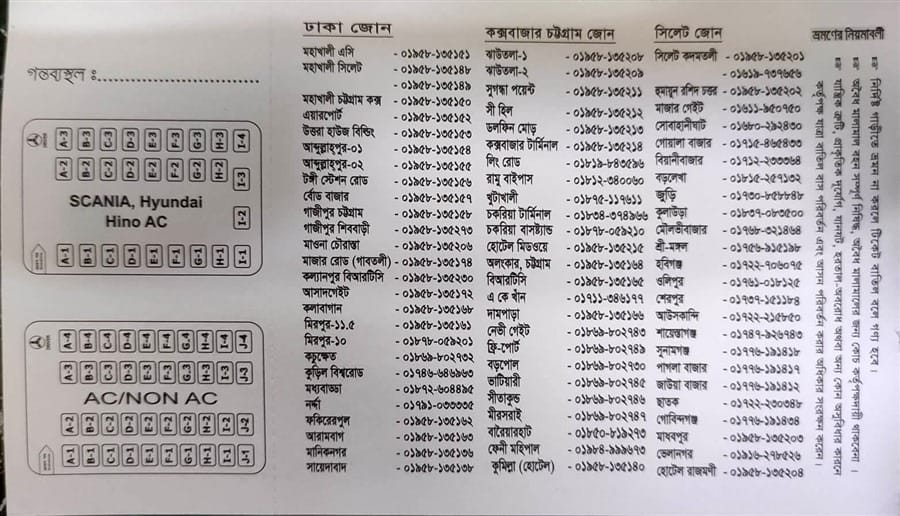 গন্তব্যস্থল ঃ
A-3 B-3 C-3 D-3 E-3 F-3 G-3 H-3 I-4
A-2 B-2 C-2 D-2 E-2 F-2 G-2 H-2 I-3
SCANIA, Hyundai
Hino AC
I-2
A-1 B-1 C-1 D-1 E-1 F-1 G-1 H-1 I-1
A-4 B-4 C-4 D-4 E-4 F-4 G-4 H-4 I-4 J-4
A-3 B-3 C-3 D-3 E-3 F-3 G-3 H-3 I-3 J-3
AC/NON AC
A-2 B-2 C-2 D-2 E-2 F-2 G-2 H-2 I-2 J-2
A-1 B-1 C-1 D-1 E-1 F-1 G-1 H-1 I-1 J-1
ঢাকা জোন
মহাখালী এসি - ০১৯৫৮-১৩৫১৫১
মহাখালী সিলেট - ০১৯৫৮-১৩৫১৪৮
- ০১৯৫৮-১৩৫১৪৯
মহাখালী চট্টগ্রাম কক্স - ০১৯৫৮-১৩৫১৫০
এয়ারপোর্ট - ০১৯৫৮-১৩৫১৫২
উত্তরা হাউজ বিল্ডিং - ০১৯৫৮-১৩৫১৫৩
আব্দুল্লাহপুর-০১ - ০১৯৫৮-১৩৫১৫৪
আব্দুল্লাহপুর-০২ - ০১৯৫৮-১৩৫১৫৫
টঙ্গী স্টেশন রোড - ০১৯৫৮-১৩৫১৫৬
বোর্ড বাজার - ০১৯৫৮-১৩৫১৫৭
গাজীপুর চট্টগ্রাম - ০১৯৫৮-১৩৫১৫৮
গাজীপুর শিববাড়ী - ০১৯৫৮-১৩৫২৭৩
মাওনা চৌরাস্তা - ০১৯৫৮-১৩৫২০৬
মাজার রোড (গাবতলী) - ০১৯৫৮-১৩৫১৭৪
কল্যানপুর বিআরটিসি - ০১৯৫৮-১৩৫২৩০
আসাদগেইট - ০১৯৫৮-১৩৫১৭২
কলাবাগান - ০১৯৫৮-১৩৫১৬৮
মিরপুর-১১.৫ - ০১৯৫৮-১৩৫১৬১
মিরপুর-১০ - ০১৮৭৮-০৫৯২০১
কচুক্ষেত - ০১৮৬৯-৮০২৭৩২
কুড়িল বিশ্বরোড - ০১৭৪৬-৬৪৬৯৬৩
মধ্যবাড্ডা - ০১৮৭২-৬০৪৪৯৫
নর্দ্দা - ০১৭৯১-০৩৩৩৩৫
ফকিরেরপুল - ০১৯৫৮-১৩৫১৬২
আরামবাগ - ০১৯৫৮-১৩৫১৬৩
মানিকনগর - ০১৯৫৮-১৩৫১৩৬
সায়েদাবাদ - ০১৯৫৮-১৩৫১৩৮
কক্সবাজার চট্টগ্রাম জোন
ঝাউতলা-১ - ০১৯৫৮-১৩৫২০৮
ঝাউতলা-২ - ০১৯৫৮-১৩৫২০৯
সুগন্ধা পয়েন্ট - ০১৯৫৮-১৩৫২১১
সী হিল - ০১৯৫৮-১৩৫২১২
ডলফিন মোড় - ০১৯৫৮-১৩৫২১৩
কক্সবাজার টার্মিনাল - ০১৯৫৮-১৩৫২১৪
লিং রোড - ০১৮১৯-৮৪৩৫৯৬
রামু বাইপাস - ০১৮১২-৩৪০০৬০
খুটাখালী - ০১৮৭৫-১১৭৬১১
চকরিয়া টার্মিনাল - ০১৮৩৪-৩৭৪৯৬৬
চকরিয়া বাসষ্ট্যান্ড - ০১৮৭৮-০৫৯২১০
হোটেল মিডওয়ে - ০১৯৫৮-১৩৫২১৫
অলংকার, চট্টগ্রাম - ০১৯৫৮-১৩৫১৬৪
বিআরটিসি - ০১৯৫৮-১৩৫১৬৫
এ কে খাঁন - ০১৭১১-৩৪৬১৭৭
দামপাড়া - ০১৯৫৮-১৩৫১৬৬
নেভী গেইট - ০১৮৬৯-৮০২৭৪৩
ফ্রি-পোর্ট - ০১৮৬৯-৮০২৭৪৯
বড়পোল - ০১৮৬৯-৮০২৭৩০
ভাটিয়ারী - ০১৮৬৯-৮০২৭৪৫
সীতাকুন্ড - ০১৮৬৯-৮০২৭৪৬
মীরসরাই - ০১৮৬৯-৮০২৭৪৭
বারৈয়ারহাট - ০১৮৫০-৮১৯২৭৩
ফেনী মহিপাল - ০১৯৮৪-৯৯৯৬৭৩
কুমিল্লা (হোটেল) - ০১৯৫৮-১৩৫১৪০
সিলেট জোন
সিলেট কদমতলী - ০১৯৫৮-১৩৫২০১
- ০১৬১৯-৭৩৭৬৫৬
হুমায়ুন রশিদ চত্তর - ০১৯৫৮-১৩৫২০২
মাজার গেইট - ০১৬১১-৯৫০৭৫০
সোবাহানীঘাট - ০১৬৮০-২৯২৪৩০
গোয়ালা বাজার - ০১৭১৫-৪৬৫৪৩৩
বিয়ানীবাজার - ০১৭১২-২৩৩৩৬৪
বড়লেখা - ০১৮১৫-২৫৭১৩২
জুড়ি - ০১৭৩০-৪৮৮৮৪৮
কুলাউড়া - ০১৮৩৭-০৮৩৫০০
মৌলভীবাজার - ০১৭৬৮-৩২১৪৬৪
শ্রী-মঙ্গল - ০১৭৫৬-৯১৫১৯৮
হবিগঞ্জ - ০১৭২২-৭০৬০৭৫
ওলিপুর - ০১৭৬১-০১৮১২৫
শেরপুর - ০১৭৩৭-১৫১১৮৪
আউসকান্দি - ০১৭২২-২১৫৮৫০
শায়েস্তাগঞ্জ - ০১৭৪৭-৯২৬৭৪৩
সুনামগঞ্জ - ০১৭৭৬-১৯১৪১৮
পাগলা বাজার - ০১৭৭৬-১৯১৪১৭
জাউয়া বাজার - ০১৭৭৬-১৯১৪১২
ছাতক - ০১৭২২-২৩০৩৪৮
গোবিন্দগঞ্জ - ০১৭৭৬-১৯১৪৩৪
মাধবপুর - ০১৯৫৮-১৩৫২০৩
ভেলানগর - ০১৯১৬-২৭৮৫২৬
হোটেল রাজমণী - ০১৯৫৮-১৩৫২০৪
ভ্রমণের নিয়মাবলী
নির্দিষ্ট গাড়ীতে ভ্রমন না করলে টিকেট বাতিল বলে গণ্য হবে।
অবৈধ মালামাল বহন সম্পূর্ণ নিষিদ্ধ, অবৈধ মালামালের জন্য কোচ কর্তৃপক্ষদায়ী থাকবেনা।
যান্ত্রিক ক্রটি, প্রাকৃতিক দূর্যোগ, যানযট, হরতাল-অবরোধ অথবা অন্য কোন অসুবিধার কারনে
কর্তৃপক্ষ যাত্রা বাতিল বাস পরিবর্তন এবং আসন পরিবর্তন করার অধিকার সংরক্ষন করেন।